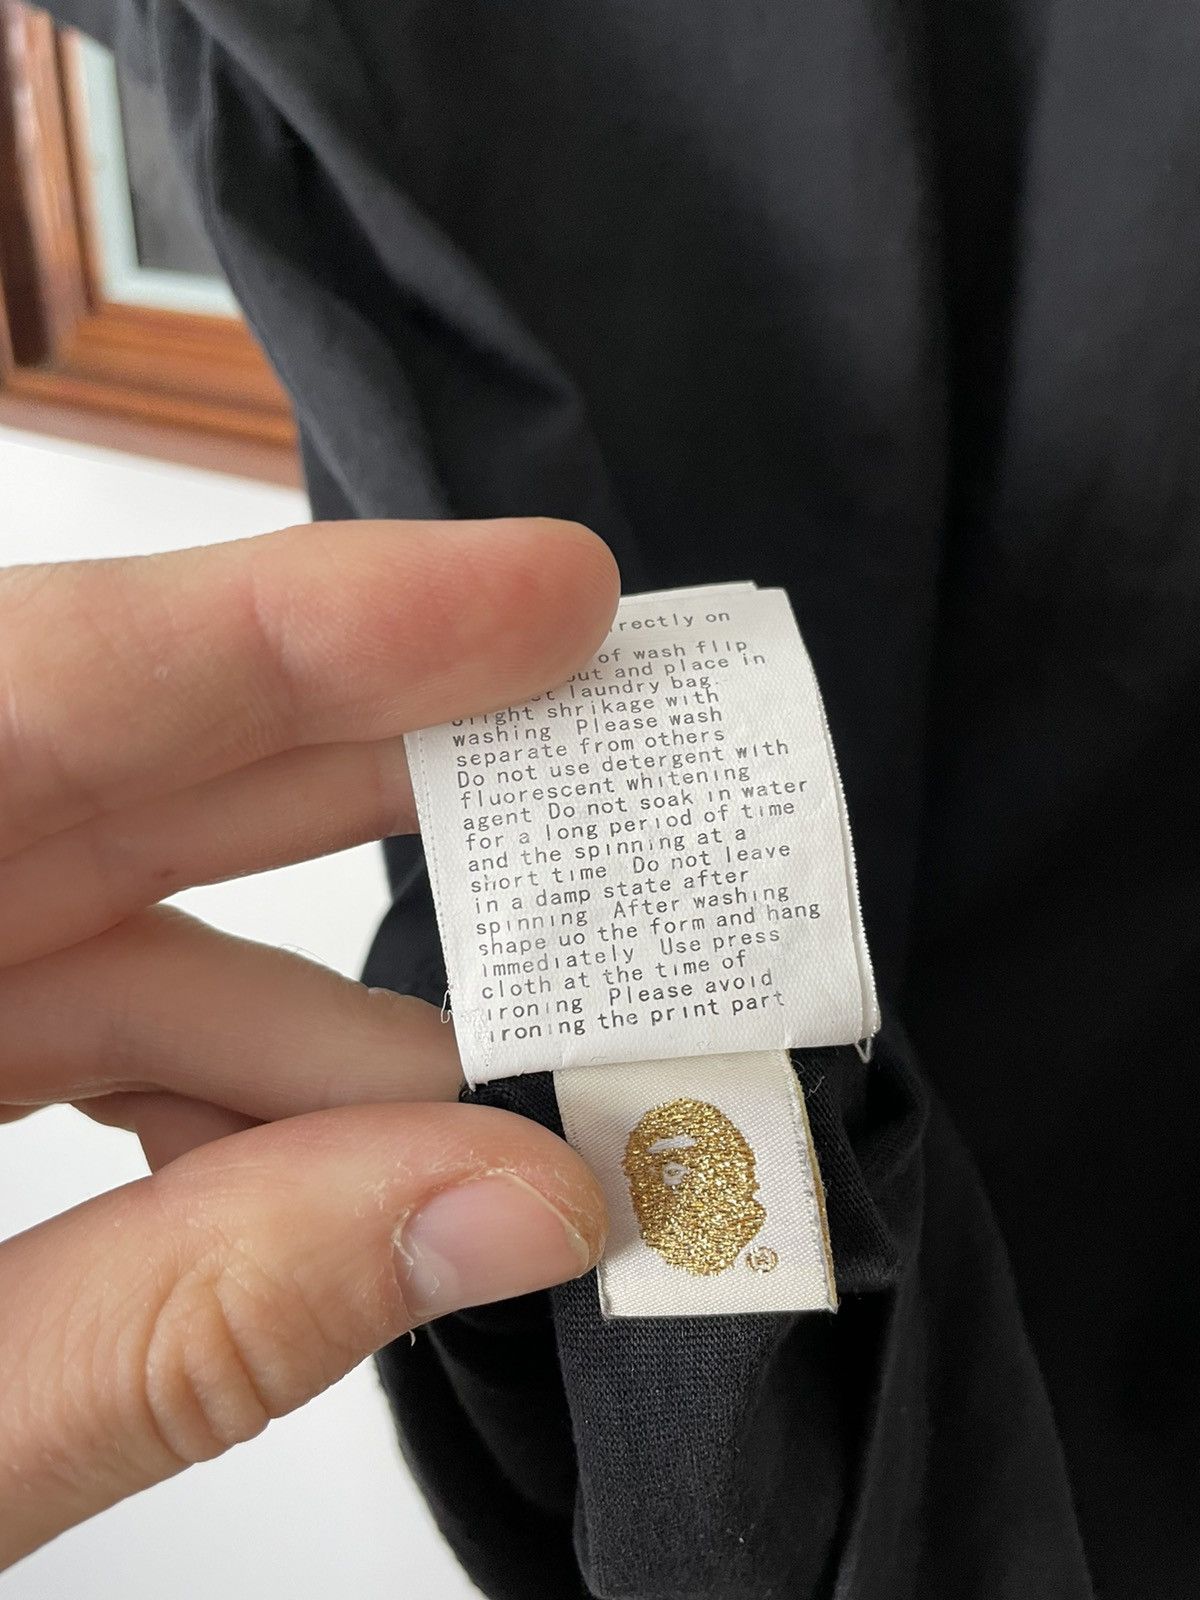 rectly on
of wash flip
out and place in
laundry bag.
slight shrikage with
washing Please wash
separate from others
Do not use detergent with
fluorescent whitening
agent Do not soak in water
for a long period of time
and the spinning at a
short time Do not leave
in a damp state after
spinning After washing
shape uo the form and hang
immediately Use press
cloth at the time of
ironing Please avoid
ironing the print part
®